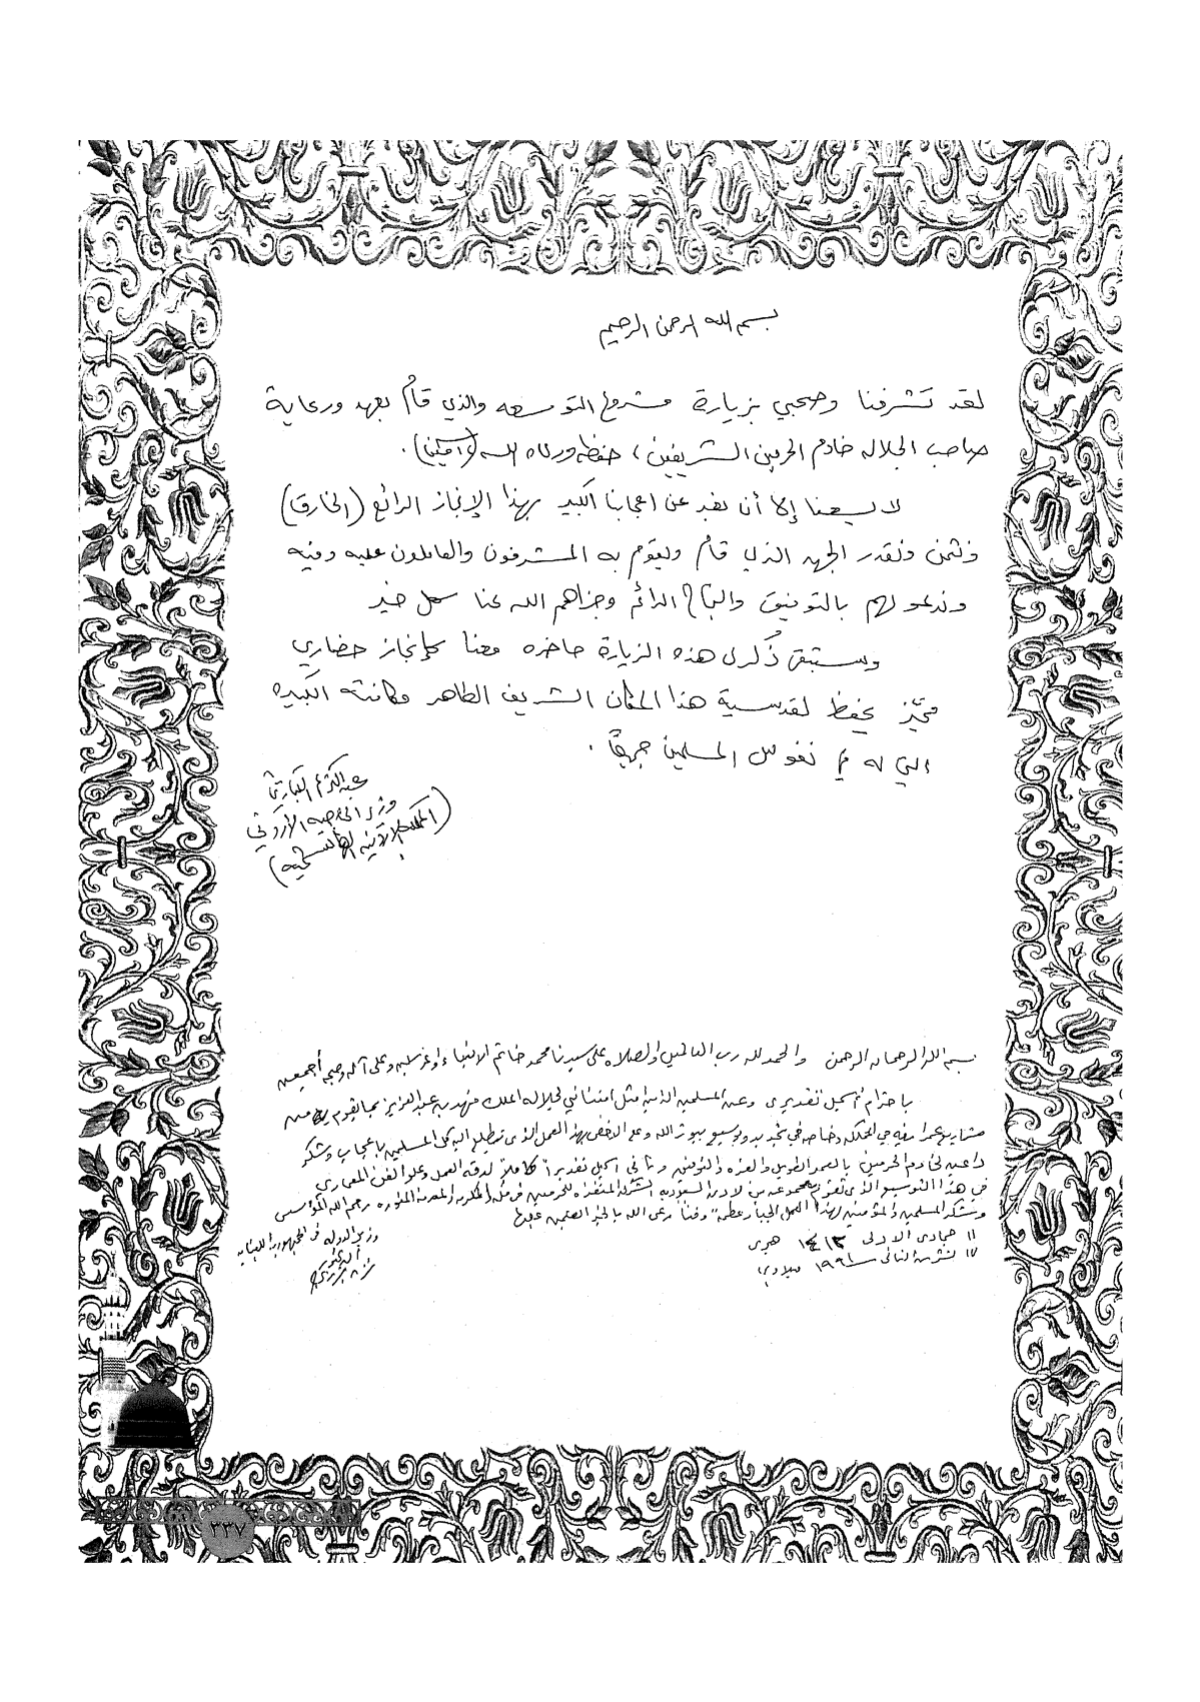 بسم الله الرحمن الرحيم
لقد تشرفنا وصحبي بزيارة مشروع التوسعه والذي قام بعهد ورعاية
صاحب الجلاله خادم الحرمين الشريفين، حفظه ورعاه الله (آمين).
لا يسعنا إلا أن نعبر عن اعجابنا الكبير بهذا الإنجاز الرائع (الخارق)
ونثمن ونقدر الجهد الذي قام ويقوم به المشرفون والعاملون عليه وفيه
وندعو لهم بالتوفيق والنجاح الدائم وجزاهم الله عنا كل خير
وستبقى ذكرى هذه الزيارة حاضره معنا كإنجاز حضاري
مميّز يحفظ لقدسية هذا المكان الشريف الطاهر ومكانته الكبيره
التي له في نفوس المسلمين جميعًا.
عبد الكريم الكباريتي
وزير الخارجيه الأردني
(المملكه الأردنيه الهاشميه)
بسم الله الرحمان الرحمن والحمد لله رب العالمين والصلاه على سيدنا محمد خاتم الانبياء وعلى آله وصحبه أجمعين
باحترام أسجل تقديري وعن المسلمين امتناني لجلاله الملك فهد بن عبد العزيز بما يقوم به من
مشاريع عمرانيه في المملكه وخاصه في تجديد وتوسيع بيوت الله وعلى الاخص بهذا العمل الذي يتطلع اليه كل المسلمين باعجاب وشكر
داعين لخادم الحرمين بالعمر الطويل والعزه والتوفيق وثاني اسجل تقديراً كاملاً لدقه العمل وعلو الفن المعماري
في هذا التوسيع الذي تقوم به مجموعه بن لادن السعوديه الشركه المنفذه للحرمين في مكه المكرمه والمدينه المنوره رحم الله المؤسس
وشكر المسلمين والمؤمنين لهذا العمل الجبار عطاءً وفناً رعى الله بالخير
١١ جمادى الاولى ١٤١٢ هجري
١٧ تشرين الثاني ١٩٩١ ميلادي
وزير الدوله في الجمهوريه اللبنانيه
٣٣٧